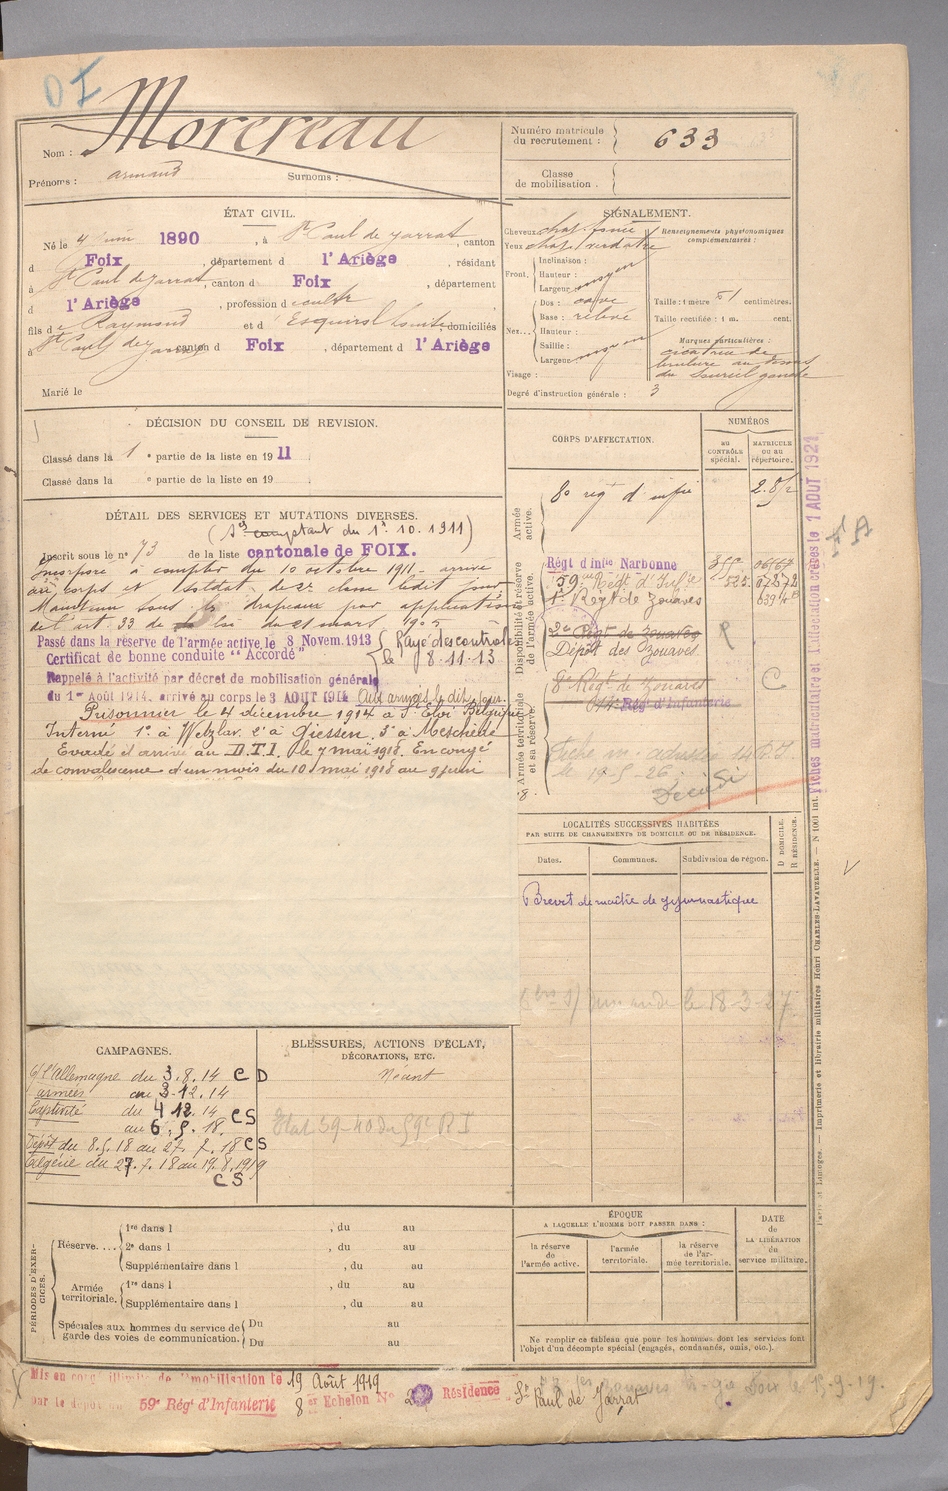 D I
Nom : Morereau
Prénoms : armand Surnoms :
Numéro matricule du recrutement : 633
Classe de mobilisation .
ÉTAT CIVIL.
Né le 4 juin 1890 , à St Paul de Jarrat , canton
d Foix , département d l'Ariège , résidant
à St Paul de Jarrat , canton d Foix , département
d l'Ariège , profession d
fils de Raymond et d' Esquirol Louise , domiciliés
à St Paul de Jarrat canton d Foix , département d l'Ariège
Marié le
SIGNALEMENT.
Cheveux
Yeux chat. verdâtre
Front. Inclinaison :
Hauteur :
Largeur : moyen
Nez... Dos : cave
Base : relevé
Hauteur :
Saillie :
Largeur : moyen
Visage :
Renseignements physionomiques complémentaires :
Taille : 1 mètre 51 centimètres.
Taille rectifiée : 1 m. cent.
Marques particulières :
cicatrice de
brulure au
du sourcil gauche
Degré d'instruction générale : 3
DÉCISION DU CONSEIL DE REVISION.
Classé dans la 1 e partie de la liste en 19 11
Classé dans la e partie de la liste en 19
DÉTAIL DES SERVICES ET MUTATIONS DIVERSES.
( comptant du 1er. 10. 1911)
Inscrit sous le n° 73 de la liste cantonale de FOIX.
Incorporé à compter du 10 octobre 1911 - arrivé
au corps et soldat de 2e classe ledit jour
Maintenu sous les drapeaux par application
de l'art. 33 de la loi du 21 mars 1905
Passé dans la réserve de l'armée active le 8 Novem. 1913
Certificat de bonne conduite "Accordé"
Rayé des contrôles
le 8.11.13
Rappelé à l'activité par décret de mobilisation générale
du 1er Août 1914. arrivé au corps le 3 AOUT 1914 Aux armées le dit jour.
Prisonnier le 4 décembre 1914 à St Eloi Belgique
Interné 1° à Wetzlar 2° à Giessen. 3° à Meschede
Evadé et arrivé au D.T.I. le 7 mai 1918. En congé
de convalescence d'un mois du 10 mai 1918 au 9 juin
CORPS D'AFFECTATION.
NUMÉROS
AU CONTRÔLE spécial.
MATRICULE OU AU répertoire.
Armée active.
8e régt d'infie
Disponibilité et réserve de l'armée active.
Régt d'Infie Narbonne
59me Régt d'Infie
1er Régt de Zouaves
2e Régt de Zouaves
Dépôt des Zouaves
R
Armée territoriale et sa réserve.
8e Régt de Zouaves
Régt d'Infanterie
C
le 19-5-26
LOCALITÉS SUCCESSIVES HABITÉES
PAR SUITE DE CHANGEMENTS DE DOMICILE OU DE RÉSIDENCE.
Dates. Communes. Subdivision de région. D DOMICILE. R RÉSIDENCE.
Brevet de maître de gymnastique
le 18-3-27
Fiches matriculaire et d'affectation créées le 1 AOUT 1921
Paris et Limoges. — Imprimerie et librairie militaires Henri CHARLES-LAVAUZELLE. — N 1001 int.
CAMPAGNES.
C/ l'Allemagne du 3.8.14 C D
armées au 3-12.14
Captivité du 4 12. 14 C S
au 6. 5. 18.
Dépôt du 8.5.18 au 27. 7. 18 C S
Algérie du 27. 7. 18 au 19.8.1919
C S
BLESSURES, ACTIONS D'ÉCLAT,
DÉCORATIONS, ETC.
Néant
Etat 39-40 du 59e R I
PÉRIODES D'EXERCICES.
Réserve.... 1re dans l , du au
2e dans l , du au
Supplémentaire dans l , du au
Armée territoriale. 1re dans l , du au
Supplémentaire dans l , du au
Spéciales aux hommes du service de garde des voies de communication. Du au
Du au
ÉPOQUE
A LAQUELLE L'HOMME DOIT PASSER DANS :
la réserve de l'armée active.
l'armée territoriale.
la réserve de l'armée territoriale.
DATE de LA LIBÉRATION du service militaire.
Ne remplir ce tableau que pour les hommes dont les services font l'objet d'un décompte spécial (engagés, condamnés, omis, etc.).
Mis en congé illimité de démobilisation le 19 Août 1919
par le dépôt du 59e Régt d'Infanterie 8 er Echelon No Résidence St Paul de Jarrat